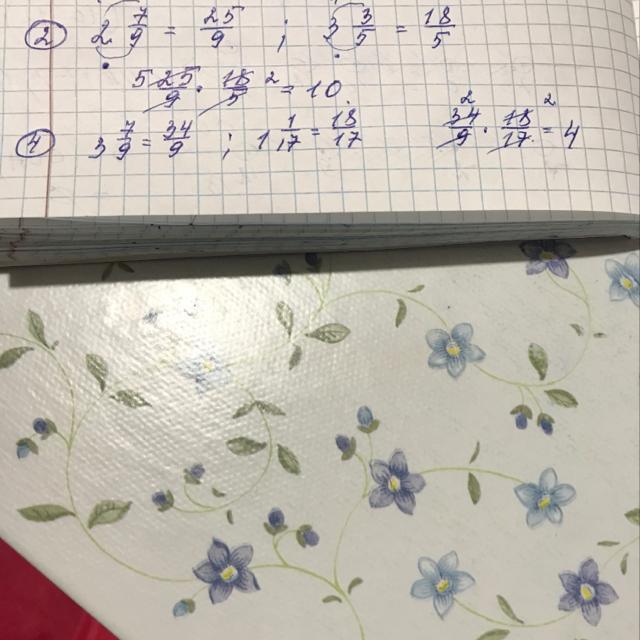 ② 2 7/9 = 25/9 ; 3 3/5 = 18/5
5 25/9 · 18/5 2 = 10.
④ 3 7/9 = 34/9 ; 1 1/17 = 18/17 2 34/9 · 18/17 2 = 4